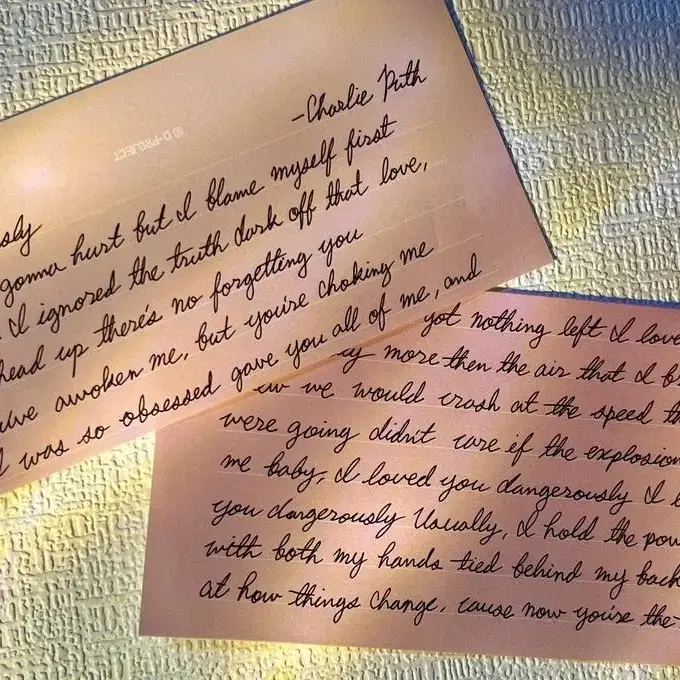 -Charlie Puth
© D-PROJECT
sly
gonna hurt but I blame myself first
I ignored the truth dark off that love,
head up there's no forgetting you
awoken me, but you're choking me
I was so obsessed gave you all of me, and
got nothing left I love
more then the air that I
we would crash at the speed
were going didn't care if the explosion
me baby, I loved you dangerously I
you dangerously Usually, I hold the
with both my hands tied behind my back
at how things change, cause now you're the